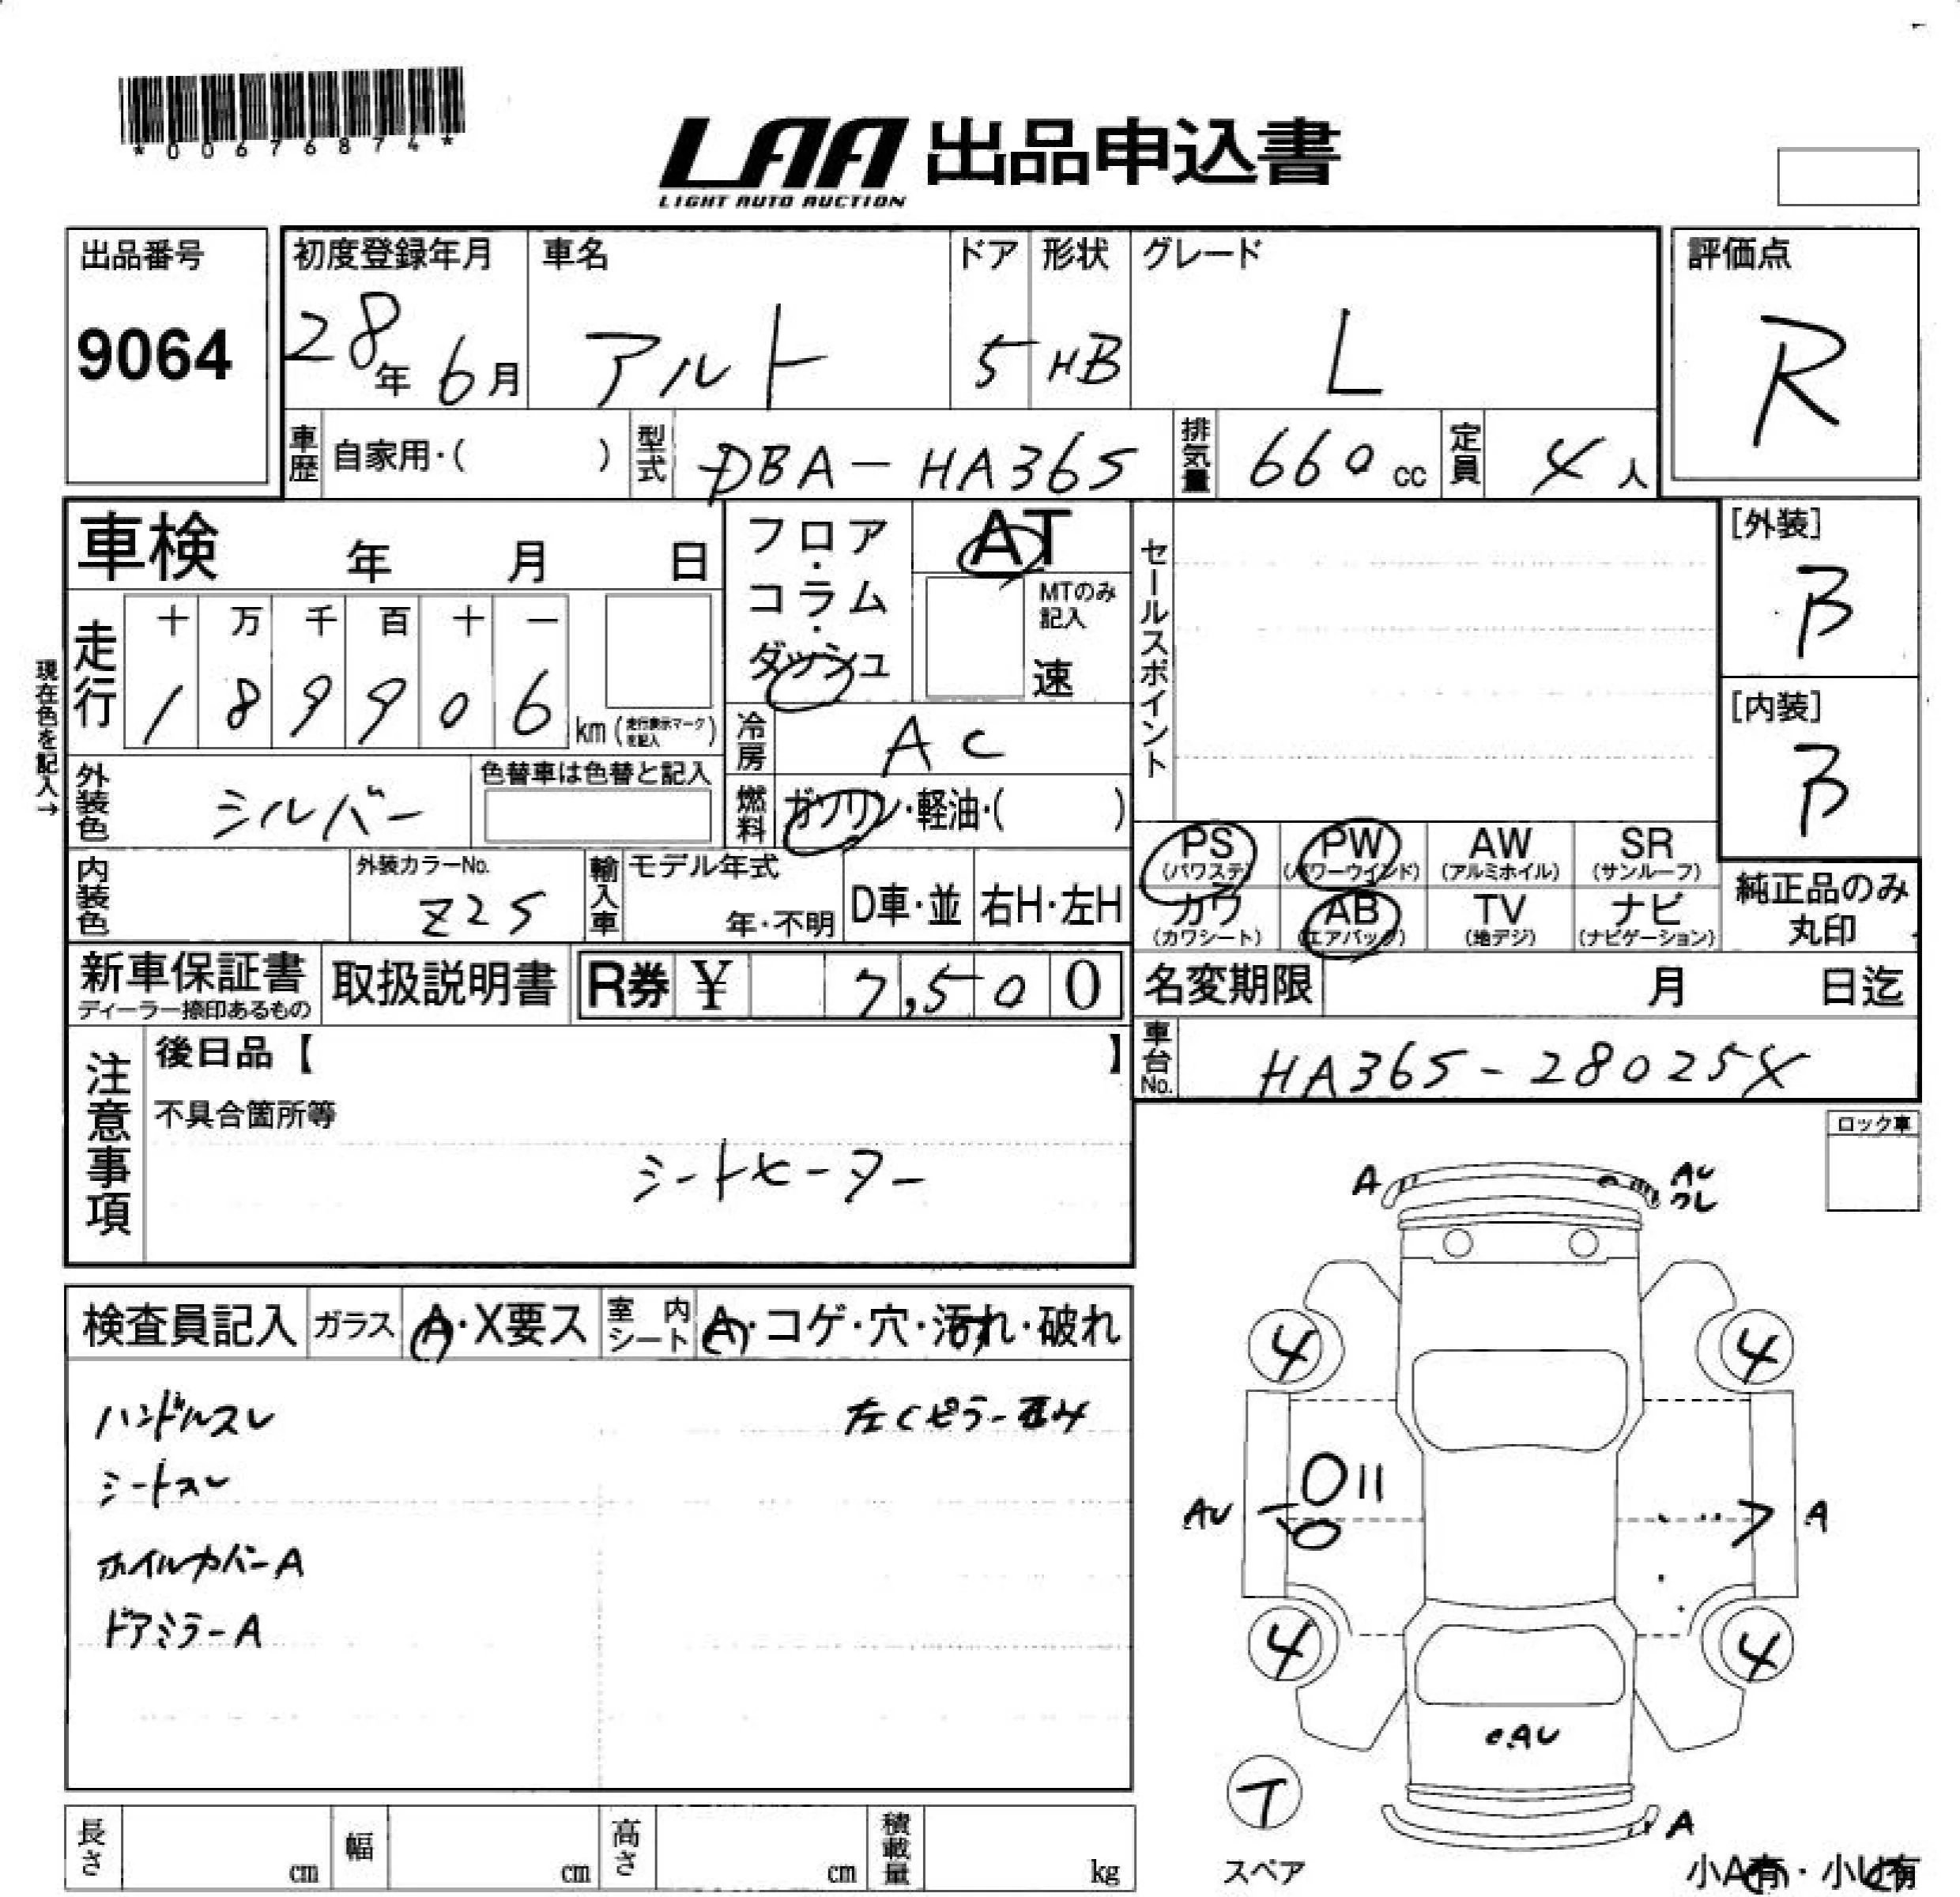 *00676874*
LAA 出品申込書
LIGHT AUTO AUCTION
出品番号
9064
初度登録年月
28年 6月
車名
アルト
ドア
5
形状
HB
グレード
L
評価点
R
車歴 自家用・( )
型式 DBA-HA36S
排気量 660 cc
定員 4 人
車検 年 月 日
フロア・コラム・ダッシュ
AT
MTのみ記入
速
セールスポイント
[外装]
B
[内装]
B
現在色を記入→
走行 十 万 千 百 十 一
1 8 9 9 0 6 km (走行表示マークを記入)
冷房 AC
外装色 シルバー
色替車は色替と記入
燃料 ガソリン・軽油・( )
PS (パワステ)
PW (パワーウインド)
AW (アルミホイル)
SR (サンルーフ)
カワ (カワシート)
AB (エアバック)
TV (地デジ)
ナビ (ナビゲーション)
純正品のみ丸印
内装色
外装カラーNo.
Z2S
輸入車 モデル年式
年・不明
D車・並
右H・左H
新車保証書
ディーラー捺印あるもの
取扱説明書
R券 ¥ 7,500
名変期限 月 日迄
車台No. HA36S-280254
注意事項
後日品【 】
不具合箇所等
シートヒーター
ロック車
検査員記入 ガラス A・X要ス 室内シート A・コゲ・穴・汚れ・破れ
ハンドルスレ
左Cピラー歪み
シートスレ
ホイルカバーA
ドアミラーA
A
AU
ワレ
4
4
AU
A
4
4
AU
T
スペア
A
小A有・小U有
長さ cm
幅 cm
高さ cm
積載量 kg